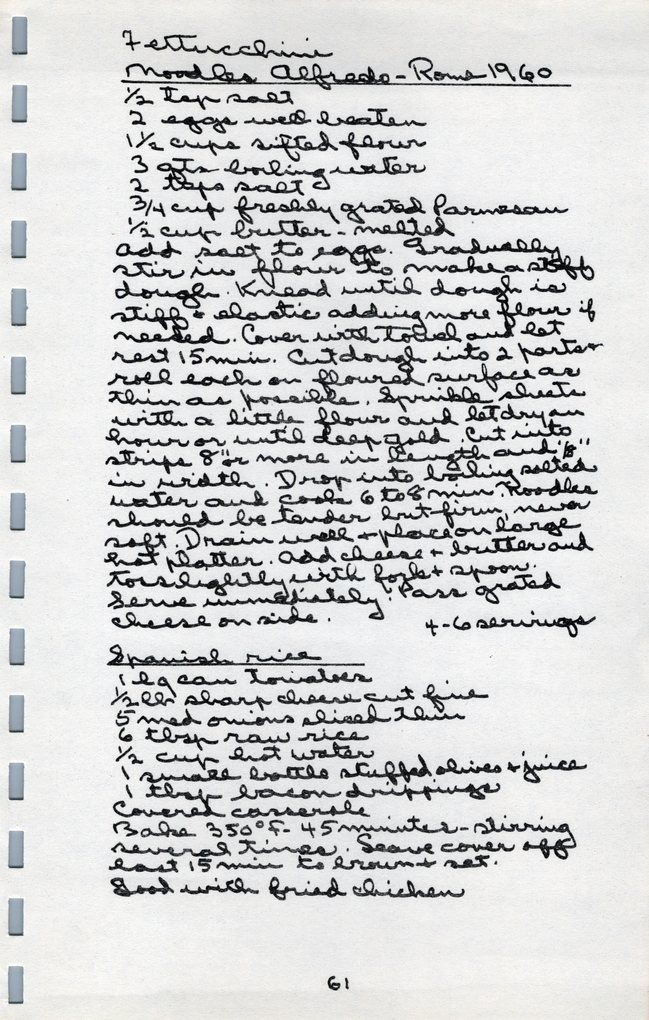 Fettucchini
Noodles Alfredo - Rome 1960
1/2 tsp salt
2 eggs well beaten
1 1/2 cups sifted flour
3 qts boiling water
2 tsps salt
3/4 cup freshly grated Parmesan
1/2 cup butter - melted
Add salt to eggs. Gradually
stir in flour to make a stiff
dough. Knead until dough is
stiff + elastic adding more flour if
needed. Cover with towel and let
rest 15 min. Cut dough into 2 parts +
roll each on floured surface as
thin as possible. Sprinkle sheets
with a little flour and let dry an
hour or until deep gold. Cut into
strips 8" or more in length and 1/8"
in width. Drop into boiling salted
water and cook 6 to 8 min. Noodles
should be tender but firm, never
soft. Drain well + place on large
hot platter. Add cheese + butter and
toss lightly with fork + spoon.
Serve immediately. Pass grated
cheese on side. 4-6 servings
Spanish rice
1 lg can tomatoes
1/2 lb sharp cheese cut fine
5 med onions sliced thin
6 tbsp raw rice
1/2 cup hot water
1 small bottle stuffed olives + juice
1 tbsp bacon drippings
Covered casserole
Bake 350°F - 45 minutes - stirring
several times. Leave cover off
last 15 min to brown + set.
Good with fried chicken
61